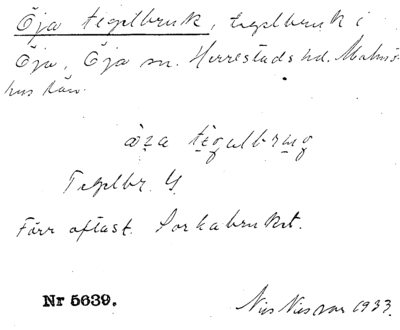 Öja tegelbruk, tegelbruk i
Öja, Öja sn. Herrestads hd. Malmö-
hus län.
tegelbrug
Tegelbr.
Förr oftast. Torkabruket.
Nr 5639.
Nils Nilsson 1933.